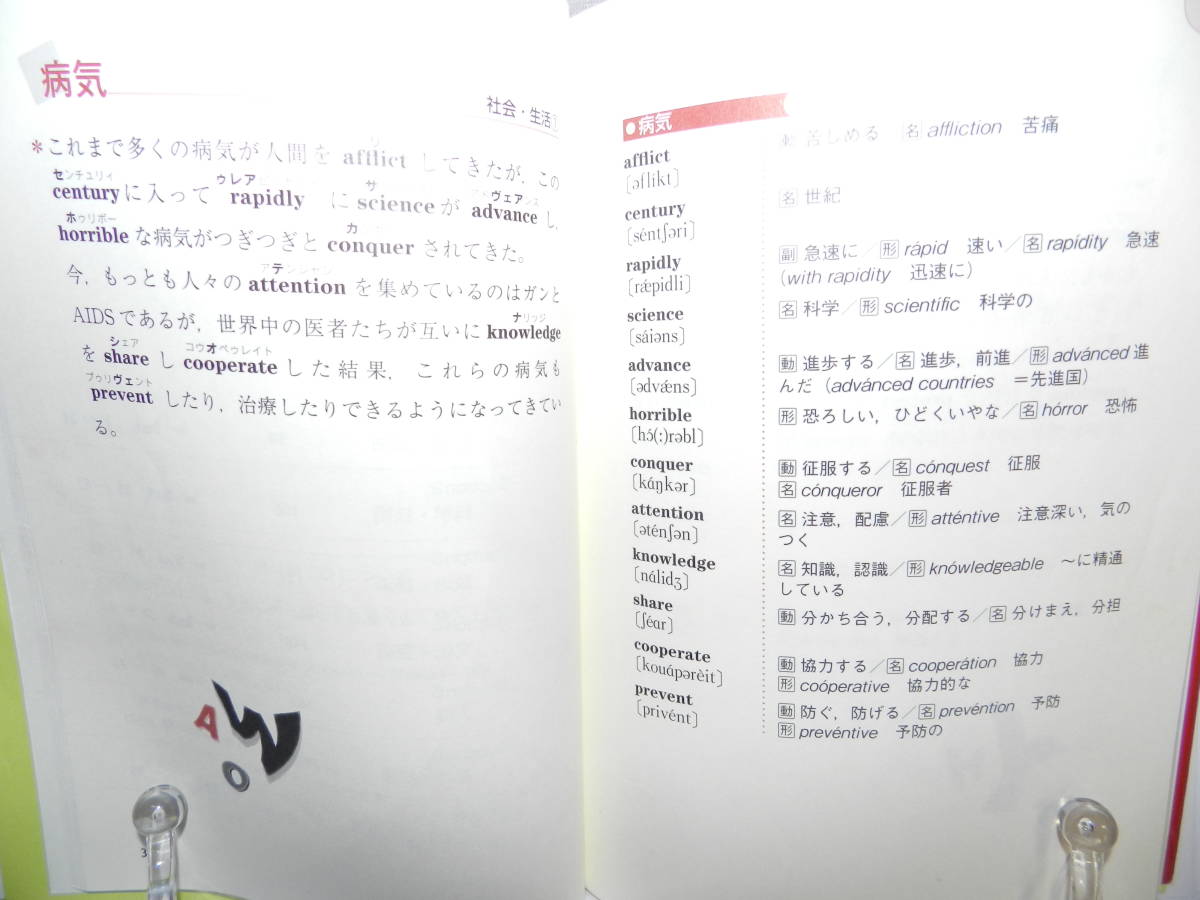 病気
社会・生活
*これまで多くの病気が人間を afflict してきたが，この
センチュリィ ゥレア サ ヴェアンス
centuryに入って rapidly に science が advance し，
ホゥリボー カ
horrible な病気がつぎつぎと conquer されてきた。
アテンシャン
今，もっとも人々の attention を集めているのはガンと
ナリッジ
AIDSであるが，世界中の医者たちが互いに knowledge
シェア コウオペゥレイト
を share し cooperate した結果，これらの病気も
プゥリヴェント
prevent したり，治療したりできるようになってきてい
る。
3
●病気
afflict
[əflíkt]
動 苦しめる 名 affliction 苦痛
century
[séntʃəri]
名 世紀
rapidly
[rǽpidli]
副 急速に／形 rápid 速い／名 rapídity 急速
(with rapidity 迅速に)
science
[sáiəns]
名 科学／形 scientífic 科学の
advance
[ədvǽns]
動 進歩する／名 進歩，前進／形 advánced 進
んだ (advánced countries ＝先進国)
horrible
[hɔ́(:)rəbl]
形 恐ろしい，ひどくいやな／名 hórror 恐怖
conquer
[káŋkər]
動 征服する／名 cónquest 征服
名 cónqueror 征服者
attention
[əténʃən]
名 注意，配慮／形 atténtive 注意深い，気の
つく
knowledge
[nálidʒ]
名 知識，認識／形 knówledgeable ～に精通
している
share
[ʃéər]
動 分かち合う，分配する／名 分けまえ，分担
cooperate
[kouápərèit]
動 協力する／名 cooperátion 協力
形 coóperative 協力的な
prevent
[privént]
動 防ぐ，防げる／名 prevéntion 予防
形 prevéntive 予防の